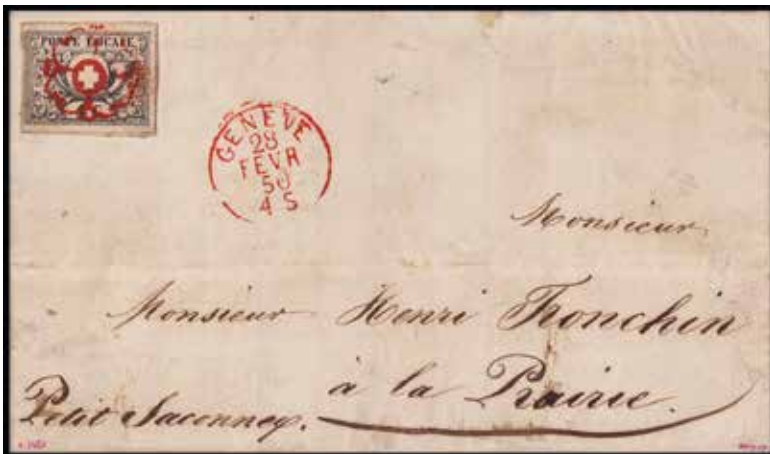 POSTE LOCALE
GENEVE
28
FEVR
50
4 S
Monsieur
Monsieur Henri Tronchin
à la Prairie.
Petit Saconnex.